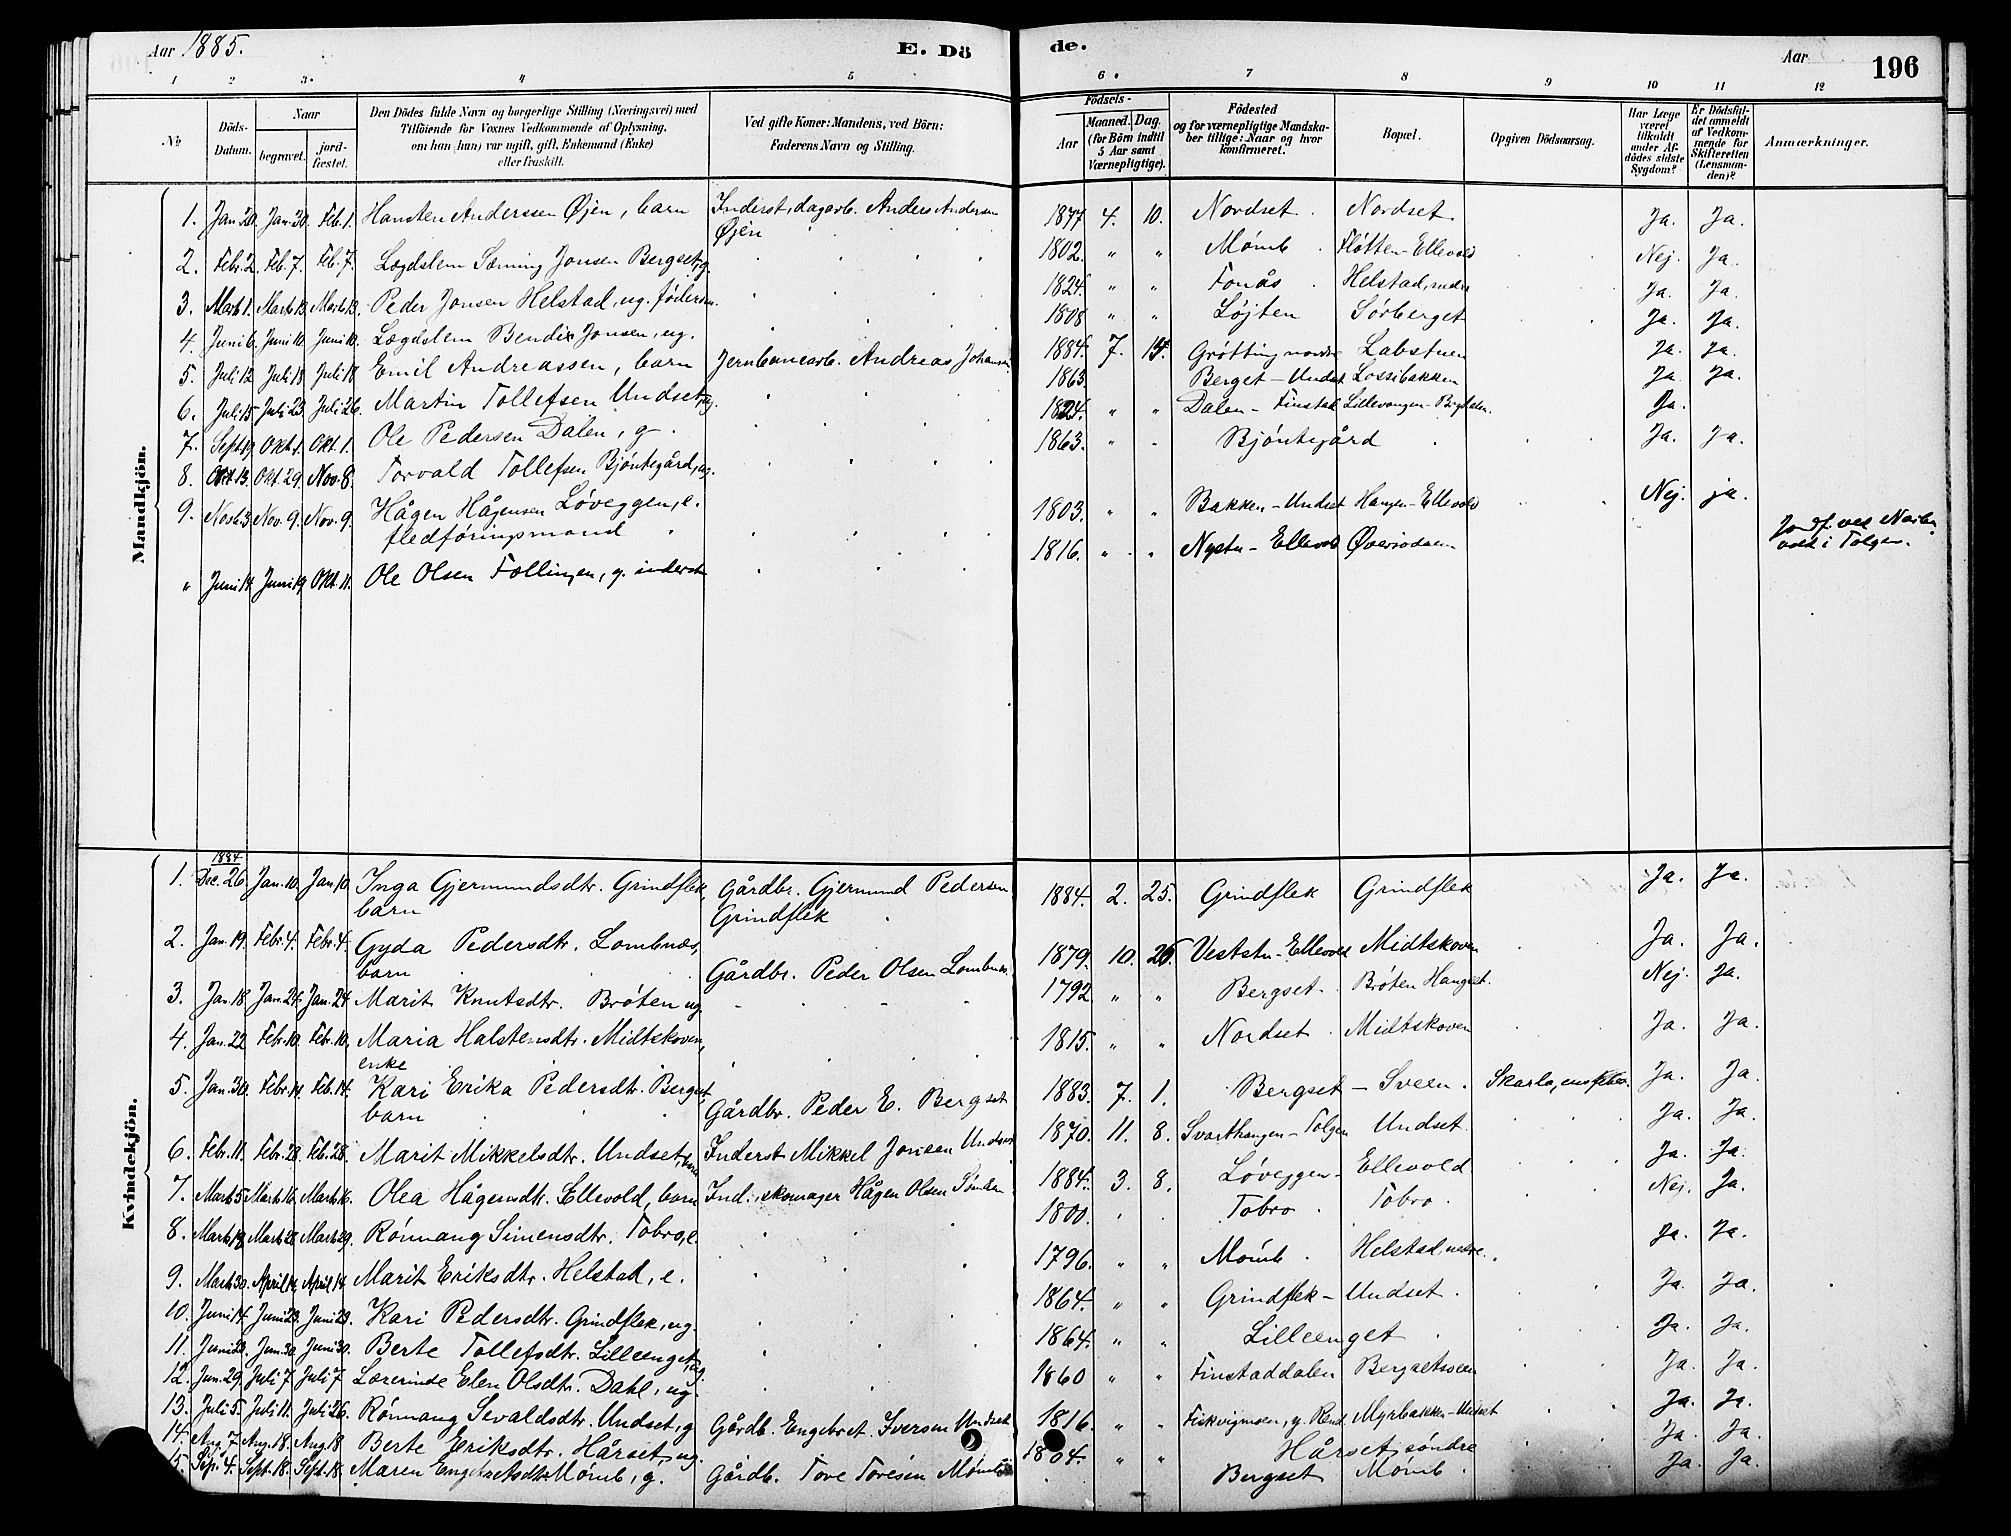 Aar 1885.
E. Dö
de.
Aar
196
1 2 3. 4 5 6. 7 8 9 10 11 12
No
Döds-
Datum.
Naar
begravet.
jord-
fæstet.
Den Dödes fulde Navn og borgerlige Stilling (Næringsvei) med
Tilföiende for Voxnes Vedkommende af Oplysning,
om han (hun) var ugift, gift, Enkemand (Enke)
eller fraskilt.
Ved gifte Koner: Mandens, ved Börn:
Faderens Navn og Stilling.
Födsels-
Aar
Maaned. Dag.
(for Börn indtil
5 Aar samt
Værnepligtige).
Födested
og for værnepligtige Mandska-
ber tillige: Naar og hvor
konfirmeret.
Bopæl.
Opgiven Dödsaarsag.
Har Læge
været
tilkaldt
under Af-
dödes sidste
Sygdom?
Er Dödsfal-
det anmeldt
af Vedkom-
mende for
Skifteretten
(Lensman-
den)?
Anmærkninger.
Mandkjön.
1. Jan. 20. Jan. 30. Feb. 1. Hansten Anderssen Øjen, barn Inderst, dagarb. Anders Andersen Øjen 1877 4. 10. Nordset. Nordset. Ja. Ja.
2. Febr. 2. Feb. 7. Feb. 7. Lægdslem Sæming Jonsen Bergset, g. 1802. " " Mømb Fløtten-Ellevold Nej. Ja.
3. Marts 1. Marts 13. Marts 13. Peder Jonsen Helstad, ug. 1824. " " Fonås Helstad, nedre Ja. Ja.
4. Juni 6. Juni 10. Juni 10. Lægdslem Bendix Jonsen, ug. 1808 " " Løjten Sørberget Ja. Ja.
5. Juli 12 Juli 18 Juli 18 Emil Andreassen, barn Jernbanearb. Andreas 1884. 7. Grøtting nordre Labstuen Ja. Ja.
6. Juli 15 Juli 23. Juli 26. Martin Tollefsen Undset, ug. 1863. Berget-Undset Lossibakken Ja. Ja.
7. Sept. 19 Okt. 1. Okt. 1. Ole Pedersen Dalen, g. " " Dalen-Finstad Ja.
8. Okt. 13. Okt. 29. Nov. 8. Torvald Tollefsen Bjøntegård, ug. 1863. " " Bjøntegård Ja. Ja.
9. Novb. 3. Nov. 9. Nov. 9. Hågen Hågensen Løveggen, e. 1803. " " Bakken-Undset Ellevold Nej. ja.
fledføringsmand
" Juni 14 Juni 19 Okt. 11. Ole Olsen Føllingen, g. inderst 1816. " " Nystu-Ellevold Ja.
i Tolgen.
Kvindekjön.
1884
1. Dec. 26. Jan. 10. Jan. 10. Inga Gjermundsdtr. Grindflek, Gårdbr. Gjermund Pedersen 1884. 2. 25. Grindflek Grindflek Ja. Ja.
barn Grindflek
2. Jan. 19. Febr. 4. Febr. 4. Gyda Pedersdtr. Lombnæs, 1879. 10. Veststu-Ellevold Midtskoven Ja. Ja.
barn Gårdbr. Peder Olsen Lombnæs.
3. Jan. 18 Jan. 24. Jan. 24. Marit Knutsdtr. Brøten ug 1792 " " Bergset. Brøten Hangset. Nej. Ja.
4. Jan. 22 Febr. 10. Febr. 10. Maria Halstensdtr. Midtskoven, 1815. " " Nordset. Midtskoven Ja. Ja.
enke
5. Jan. 30. Febr. 14. Feb. 14. Kari Erika Pedersdtr. Bergset, 1883. 7. 1. Bergset - Sveen. Skarlagensfeber. Ja. Ja.
barn Gårdbr. Peder E. Bergset
6. Febr. 11. Febr. 28. Feb. 28. Marit Mikkelsdtr. Undset, barn Inderst Mikkel Jonsen Undset 1870. 11. 8. Svarthaugen-Tolgen Undset Ja. Ja.
7. Marts 5 Marts 16. Marts 16. Olea Hågensdtr. Ellevold, barn Ind., skomager Hågen Olsen 1884. 3. 8. Løveggen- Ellevold Ja. Ja.
8. Marts 19 Marts 28 Marts 29. Rønnaug Simensdtr. Tobro, e. 1800. Tobro Tobro. Nej. Ja.
9. Marts 30. April 14. April 14 Marit Eriksdtr. Helstad, e. 1796. " " Mømb. Helstad, nedre. Ja. Ja.
10. Juni 14. Juni 23. Juni 23. Kari Pedersdtr. Grindflek, ug. 1864. " " Grindflek- Undset Ja. Ja.
11. Juni 20. Juni 30. Juni 30. Berte Tollefsdtr. Lilleenget, ug. 1864. " " Lilleenget Ja. Ja.
12. Jun. 29. Juli 7 Juli 7 Lærerinde Elen Olsdtr. Dahl, ug. 1860 " " Finstaddalen Bergsetsveen Ja. Ja.
13. Juli 5. Juli 11. Juli 26. Rønnaug Sevaldsdtr. Undset, g Gårdb. Engebret Iversen Undset 1816. " " Fiskvigmoen, y. Rend. Myrbakken-Undset Ja. Ja.
14. Aug. 7 Aug. 18. Aug. 18 Berte Eriksdtr. Hårset, ug. Hårset, søndre Ja. Ja.
15. Sep. 4. Sept. 18. Sept. 18. Maren Engebretsdtr. Mømb, g. Gårdb. Tore Toresen Mømb 1804. " " Bergset Mømb Ja. Ja.